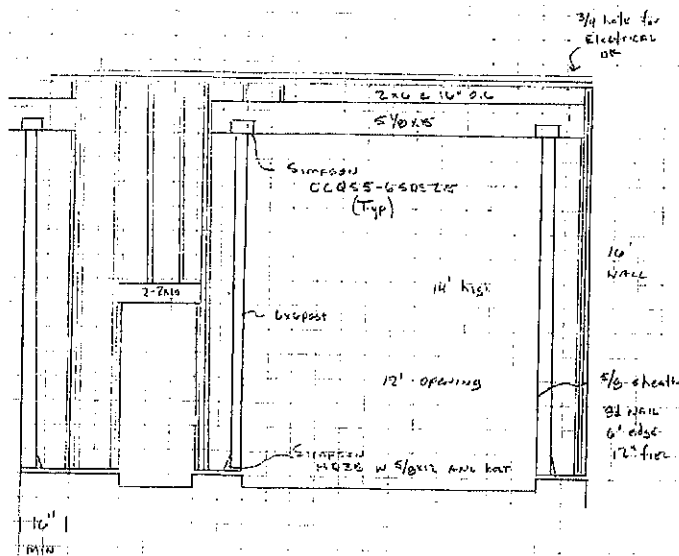 3/4 hole for
Electrical
OK
2x6 @ 16" O.C
5 1/8 x15
Simpson
(Typ)
16'
WALL
14' high
6x6 post
12' opening
5/8 sheath
8d NAIL
6" edge
12" field
Simpson
W 5/8x12 ANC BOLT
16"
MIN